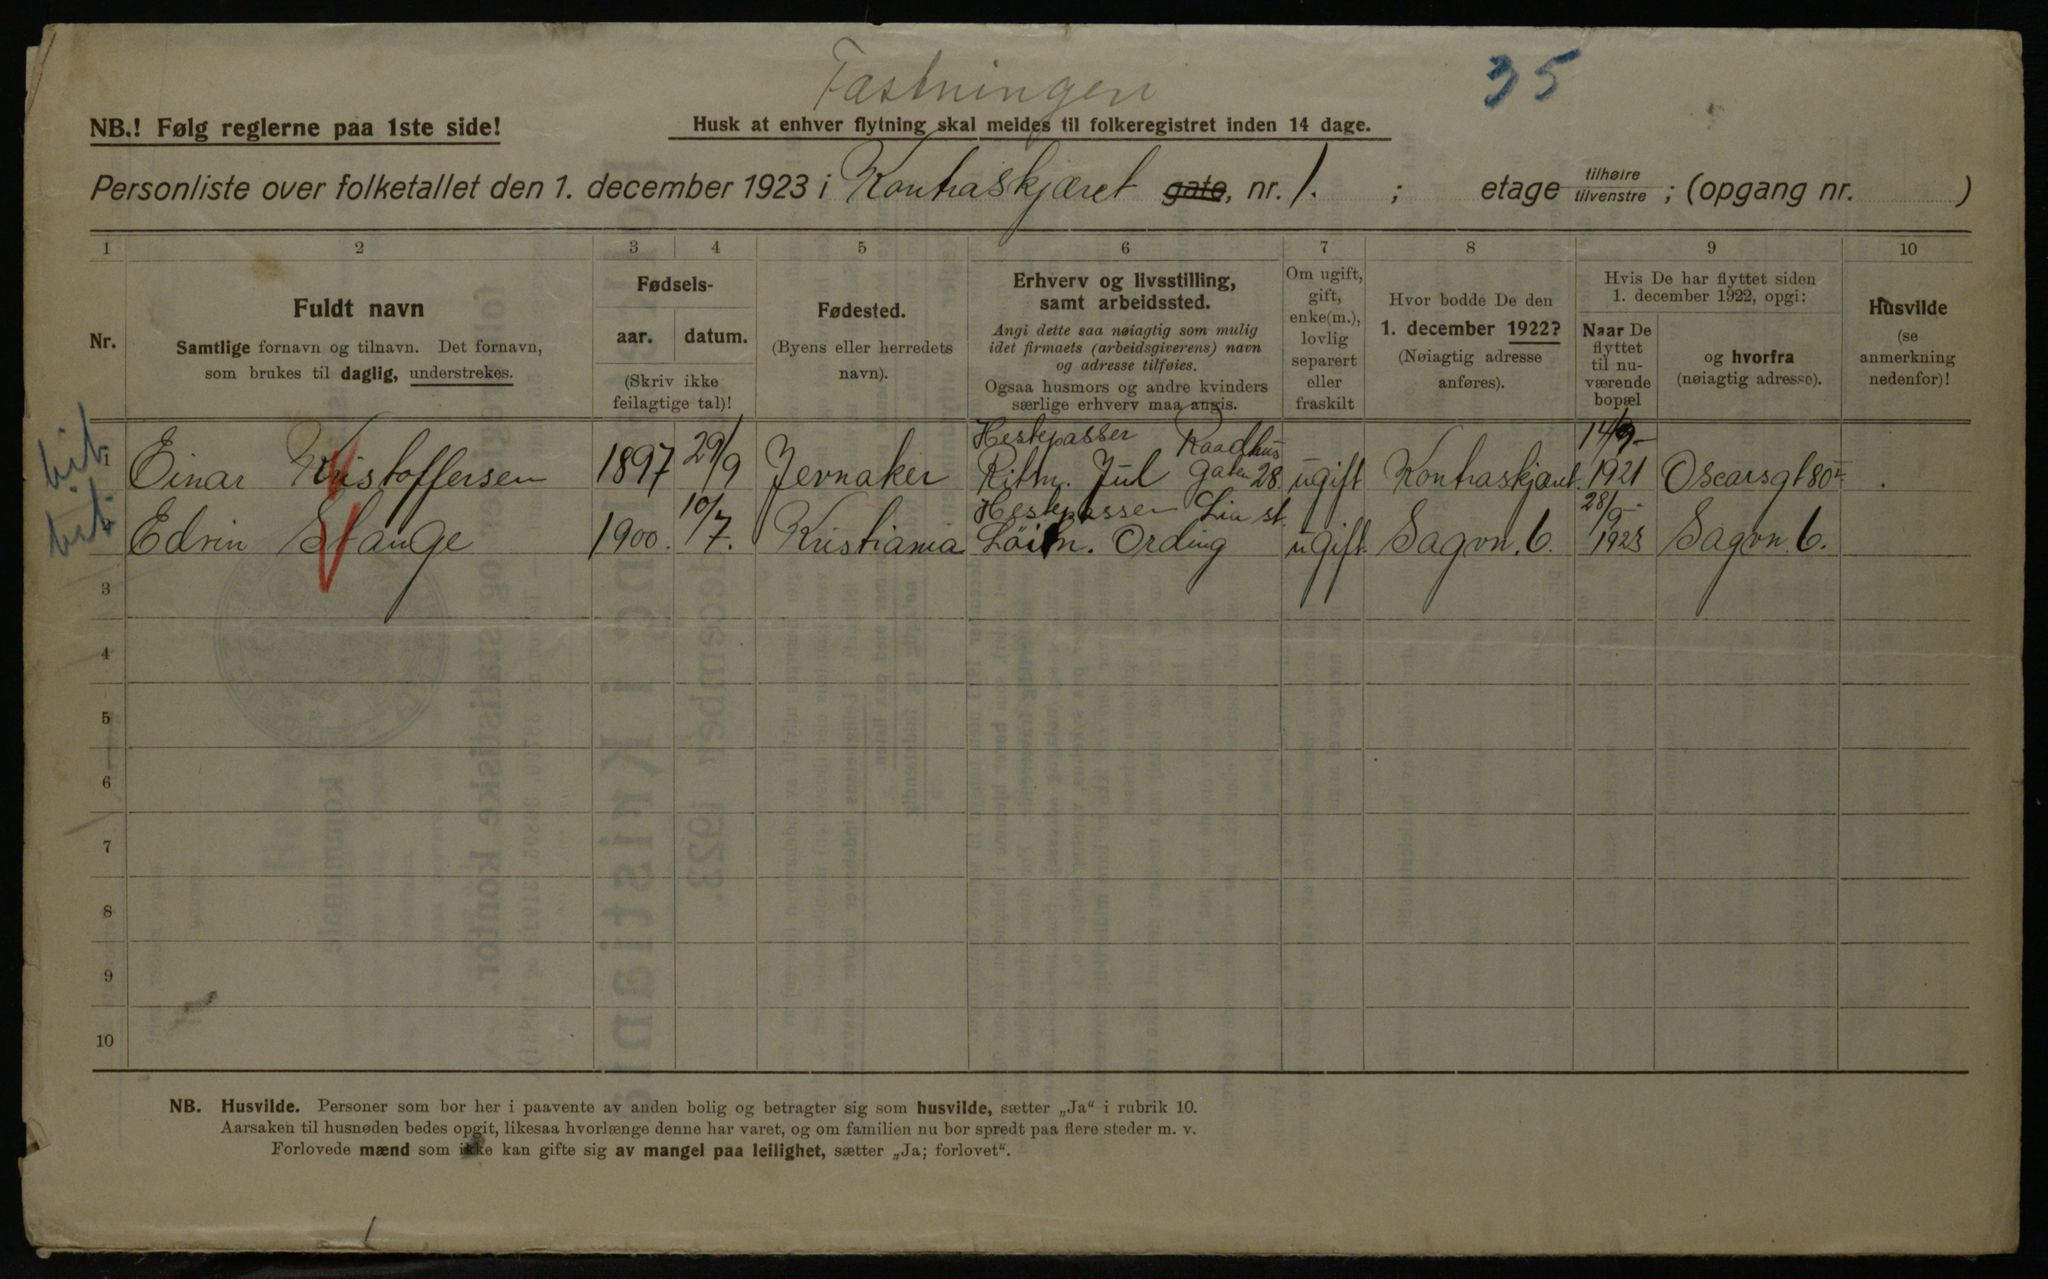 Fæstningen
35
NB.! Følg reglerne paa 1ste side!
Husk at enhver flytning skal meldes til folkeregistret inden 14 dage.
Personliste over folketallet den 1. december 1923 i Kontraskjæret gate, nr. 1. ; etage tilhøire tilvenstre ; (opgang nr. )
1 2 3 4 5 6 7 8 9 10
Nr.
Fuldt navn
Samtlige fornavn og tilnavn. Det fornavn,
som brukes til daglig, understrekes.
Fødsels-
aar. datum.
(Skriv ikke
feilagtige tal)!
Fødested.
(Byens eller herredets
navn).
Erhverv og livsstilling,
samt arbeidssted.
Angi dette saa nøiagtig som mulig
idet firmaets (arbeidsgiverens) navn
og adresse tilføies.
Ogsaa husmors og andre kvinders
særlige erhverv maa angis.
Om ugift,
gift,
enke(m.),
lovlig
separert
eller
fraskilt
Hvor bodde De den
1. december 1922?
(Nøiagtig adresse
anføres).
Hvis De har flyttet siden
1. december 1922, opgi:
Naar De
flyttet
til nu-
værende
bopæl
og hvorfra
(nøiagtig adresse).
Husvilde
(se
anmerkning
nedenfor)!
bit.
Hestepasser Raadhus 14/9-
1 Einar Kristoffersen 1897 29/9 Jevnaker Ritm. Jul Gaten 28. ugift Kontraskjæret. 1921 Oscarsgt 80
bit.
Hestepasser 28/9-
Edvin Stange 1900. 10/7. Kristiania Ording ugift. Sagvn. 6. 1923 Sagvn. 6.
3
4
5
6
7
8
9
10
NB. Husvilde. Personer som bor her i paavente av anden bolig og betragter sig som husvilde, sætter „Ja“ i rubrik 10.
Aarsaken til husnøden bedes opgit, likesaa hvorlænge denne har varet, og om familien nu bor spredt paa flere steder m. v.
Forlovede mænd som ikke kan gifte sig av mangel paa leilighet, sætter „Ja; forlovet“.